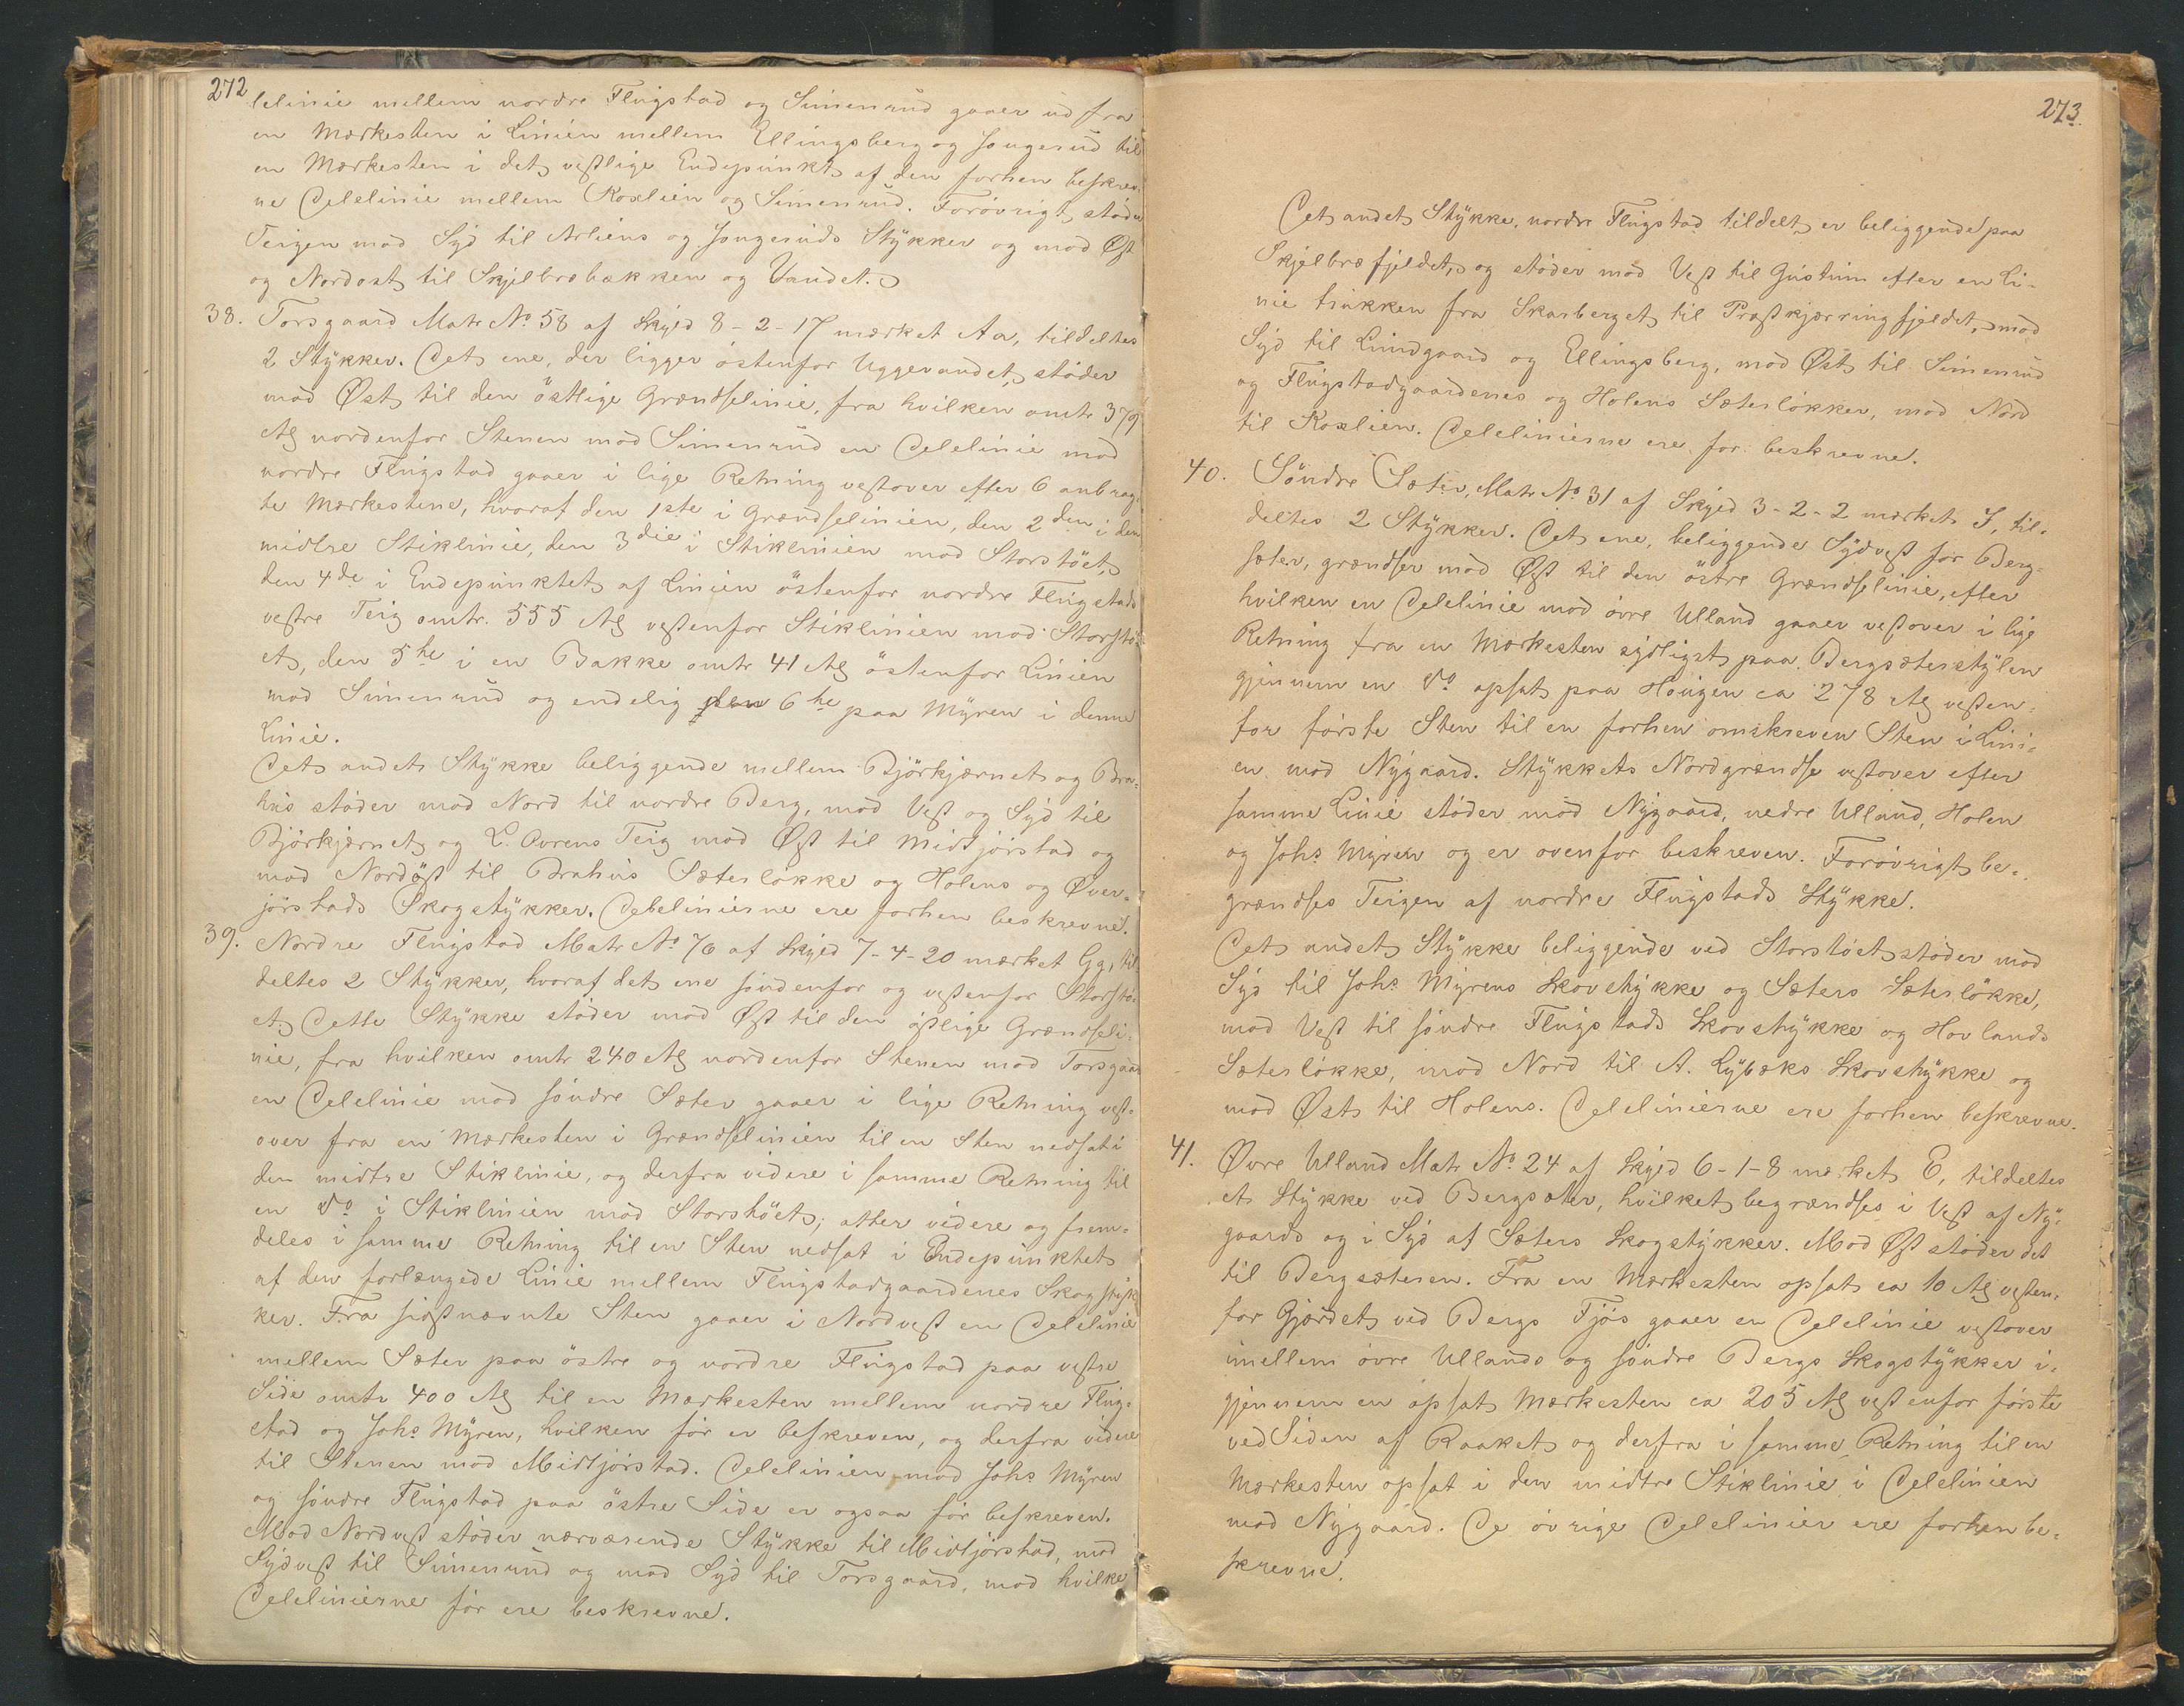 272
lelinie mellem nordre Flugstad og Simenrud gaaer ud fra
en Mærkesten i Linien mellem Ellingsberg og Jongerud til
en Mærkesten i det vestlige Endepunkt af den forhen beskrev-
ne Delelinie mellem Koxlien og Simenrud. Forøvrigt støder
Teigen mod Syd til Arliens og Jongeruds Stykker og mod Øst
og Nordost til Skjelbræbækken og Vandet.
38. Torsgaard Matr No 58 af Skyld 8-2-17 mærket Aa, tildeltes
2 Stykker. Det ene, der ligger östenfor Uggevandet, støder
mod Øst til den östlige Grændselinie, fra hvilken omtr 379
Al nordenfor Stenen mod Simenrud en Delelinie mod
nordre Flugstad gaaer i lige Retning vestover efter 6 anbrag-
te Mærkestene, hvoraf den 1ste i Grændselinien, den 2den i den
midtre Stiklinie, den 3die i Stiklinien mod Storstöet,
den 4de i Endepunktet af Linien östenfor nordre Flugstads
vestre Teig omtr. 555 Al vestenfor Stiklinien mod Storstö-
et, den 5te i en Bakke omtr 41 Al östenfor Linien
mod Simenrud og endelig den 6te paa Myren i denne
Linie.
Det andet Stykke beliggende mellem Björkjærnet og Bra-
hus støder mod Nord til nordre Berg, mod Vest og Syd til
Björkjærnet og L. Ovrens Teig mod Øst til Midtjörstad og
mod Nordöst til Brahus Sæterløkke og Holens og Øver-
jörstads Skogstykker. Delelinierne ere forhen beskrevne.
39. Nordre Flugstad Matr No 76 af Skyld 7-4-20 mærket Gg, til-
deltes 2 Stykker, hvoraf det ene søndenfor og vestenfor Storstö-
et. Dette Stykke støder mod Øst til den östlige Grændseli-
nie, fra hvilken omtr 240 Al nordenfor Stenen mod Torsgaar
en Delelinie mod söndre Sæter gaaer i lige Retning vest-
over fra en Mærkesten i Grændselinien til en Sten nedsat i
den midtre Stiklinie, og derfra videre i samme Retning til
en do i Stiklinien mod Storstöet; atter videre og frem-
deles i samme Retning til en Sten nedsat i Endepunktet
af den forlængede Linie mellem Flugstadgaardenes Skogstyk
ker. Fra sidstnævnte Sten gaaer i Nordvest en Delelinie
mellem Sæter paa östre og nordre Flugstad paa vestre
Side omtr 400 Al til en Mærkesten mellem nordre Flug-
stad og Johs Myren, hvilken før er beskreven, og derfra videre
til Stenen mod Midtjörstad. Delelinien mod Johs Myren
og söndre Flugstad paa östre Side er ogsaa før beskreven.
Mod Nordvest støder nærværende Stykke til Midtjörstad, mod
Sydvest til Simenrud og mod Syd til Torsgaard, mod hvilke
Delelinierne før ere beskrevne.
273.
Det andet Stykke, nordre Flugstad tildelt, er beliggende paa
Skjelbræfjeldet, og støder mod Vest til Gustum efter en Li-
nie trukken fra Skarberget til Præstkjærringfjeldet, mod
Syd til Lundgaard og Ellingsberg, mod Øst til Simenrud
og Flugstadgaardenes og Holens Sæterløkker, mod Nord
til Koxlien. Delelinierne ere før beskrevne.
40. Söndre Sæter, Matr No 31 af Skyld 3-2-2 mærket I, til-
deltes 2 Stykker. Det ene, beliggende Sydvest for Berg-
sæter, grændser mod Øst til den östre Grændselinie, efter
hvilken en Delelinie mod övre Ulland gaaer vestover i lige
Retning fra en Mærkesten sydligst paa Bergsæterstylen
gjennem en do opsat paa Haugen ca 278 Al vesten-
for første Sten til en forhen omskreven Sten i Lini-
en mod Nygaard. Stykkets Nordgrændse vestover efter
samme Linie støder mod Nygaard, nedre Ulland, Holen
og Johs Myren og er ovenfor beskreven. Forøvrigt be-
grændses Teigen af nordre Flugstads Stykke.
Det andet Stykke beliggende ved Storstöet støder mod
Syd til Johs Myrens Skovstykke og Sæters Sæterløkke,
mod Vest til söndre Flugstads Skovstykke og Hovlands
Sæterløkke, mod Nord til A. Lybæks Skovstykke og
mod Øst til Holens. Delelinierne ere forhen beskrevne.
41. Øvre Ulland Matr No 24 af Skyld 6-1-8 mærket E, tildeltes
et Stykke ved Bergsæter, hvilket begrændses i Vest af Ny-
gaards og i Syd af Sæters Skogstykker. Mod Øst støder det
til Bergsæteren. Fra en Mærkesten opsat ca 10 Al vesten-
for Gjærdet ved Bergs Fjös gaaer en Delelinie vestover
imellem övre Ullands og söndre Bergs Skogstykker i-
gjennem en opsat Mærkesten ca 205 Al vestenfor første
ved Siden af Raaket og derfra i samme Retning til en
Mærkesten opsat i den midtre Stiklinie i Delelinien
mod Nygaard. De övrige Delelinier ere forhen be-
skrevne.